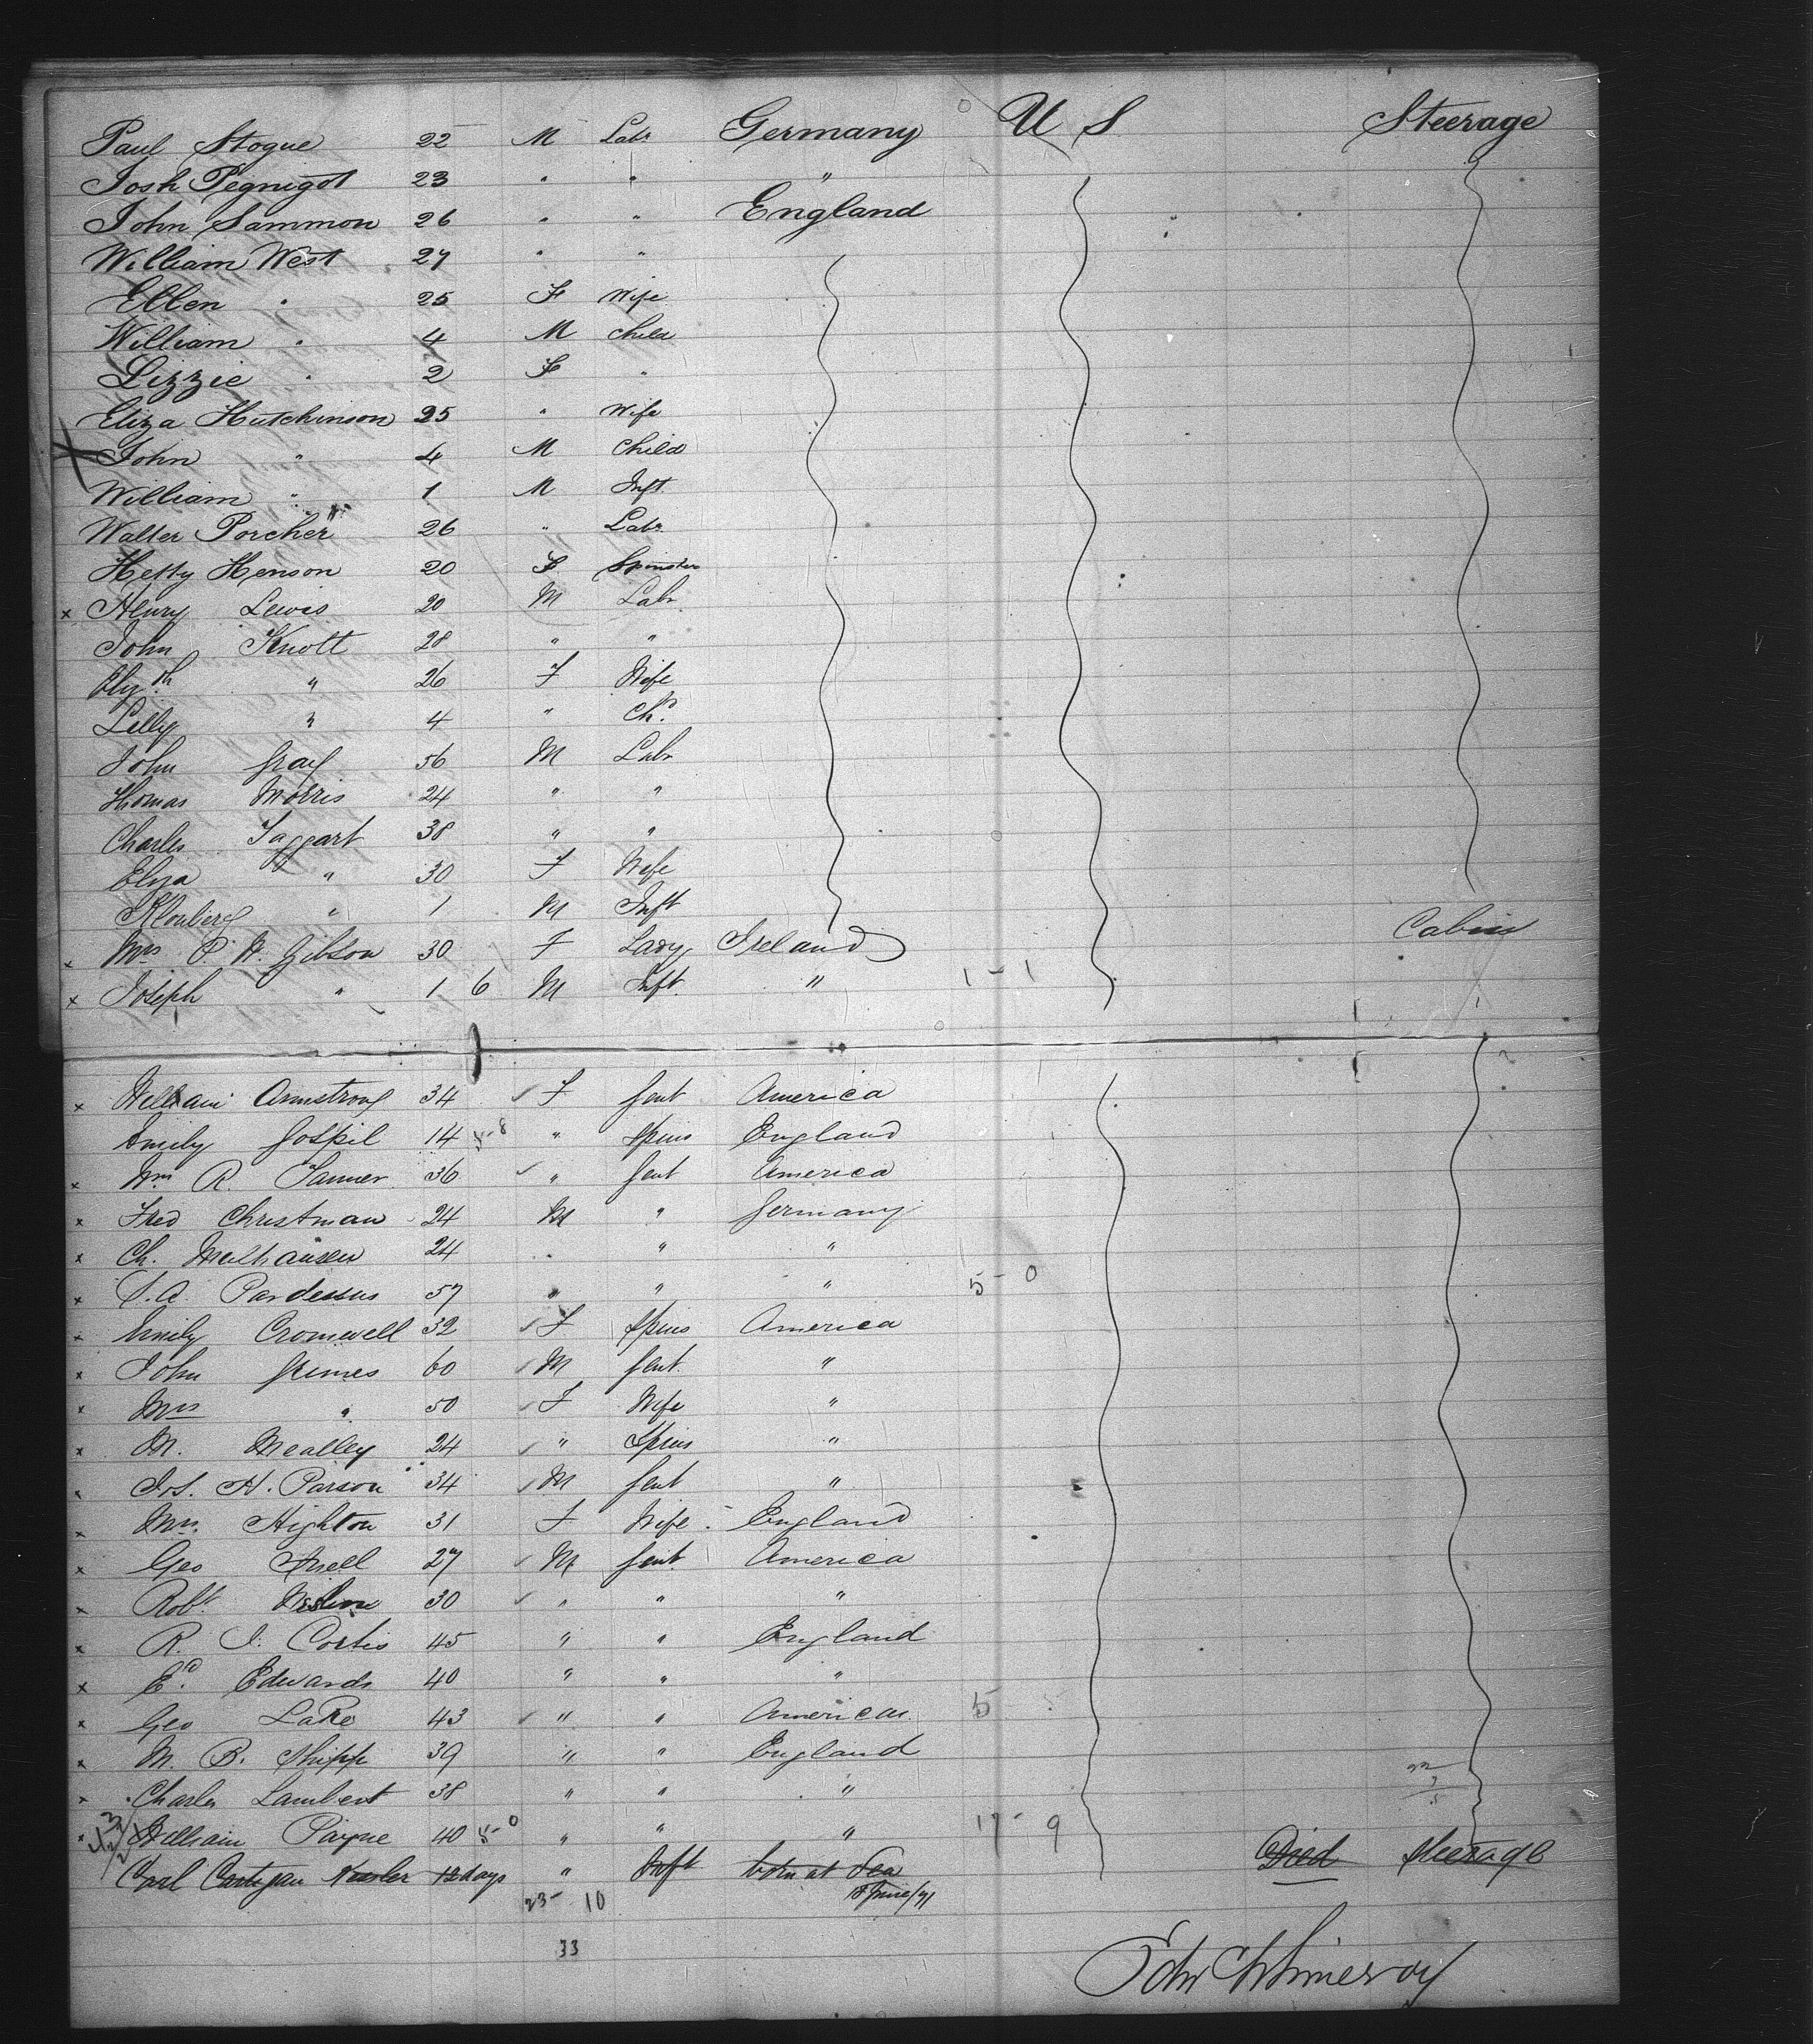 Paul Stogue 22 M Labr Germany U S Steerage
Josh Pegnigot 23 " " "
John Sammon 26 " " England
William West 27 " "
Ellen " 25 F Wife
William " 4 M Child
Lizzie " 2 F "
Eliza Hutchinson 25 " Wife
John " 4 M Child
William " 1 M Inft
Walter Porcher 26 " Labr
Hetty Henson 20 F Spinster
x Henry Lewis 20 M Labr
John Knott 28 " "
Elizth " 26 F Wife
Lilly " 4 " Chd
John Gray 56 M Labr
Thomas Morris 24 " "
Charles Taggart 38 " "
Eliza " 30 F Wife
" 1 M Inft Cabin
x Mrs P. H. Gibson 30 F Lady Ireland
x Joseph " 1 6 M Inft " 1 - 1
x William Armstrong 34 F Gent America
Emily Gospil 14 " Spins England
x Wm R. Tanner 36 " Gent America
x Fred Christman 24 M " Germany
x Ch. Mulhausen 24 " " "
x S. A. Pardessus 57 " " " 5 - 0
x Emily Cromwell 32 F Spins America
x John Grimes 60 M Gent "
x Mrs " 50 F Wife "
x M. Mealley 24 " Spins "
x Jos. H. Parson 34 M Gent "
x Mrs. Highton 31 F Wife England
x Geo 27 M Gent America
x Robt 30 " " "
x R. J. Cortis 45 " " England
x Ed. Edwards 40 " " "
x Geo Lake 43 " " American 5
x M. B. Shipp 39 " " England
x Charles Lambert 38 " " "
x William Payne 40 5-0 " " " 17 - 9
Carl Kessler 12 days " Inft born at Sea Died Steerage
23 - 10
33